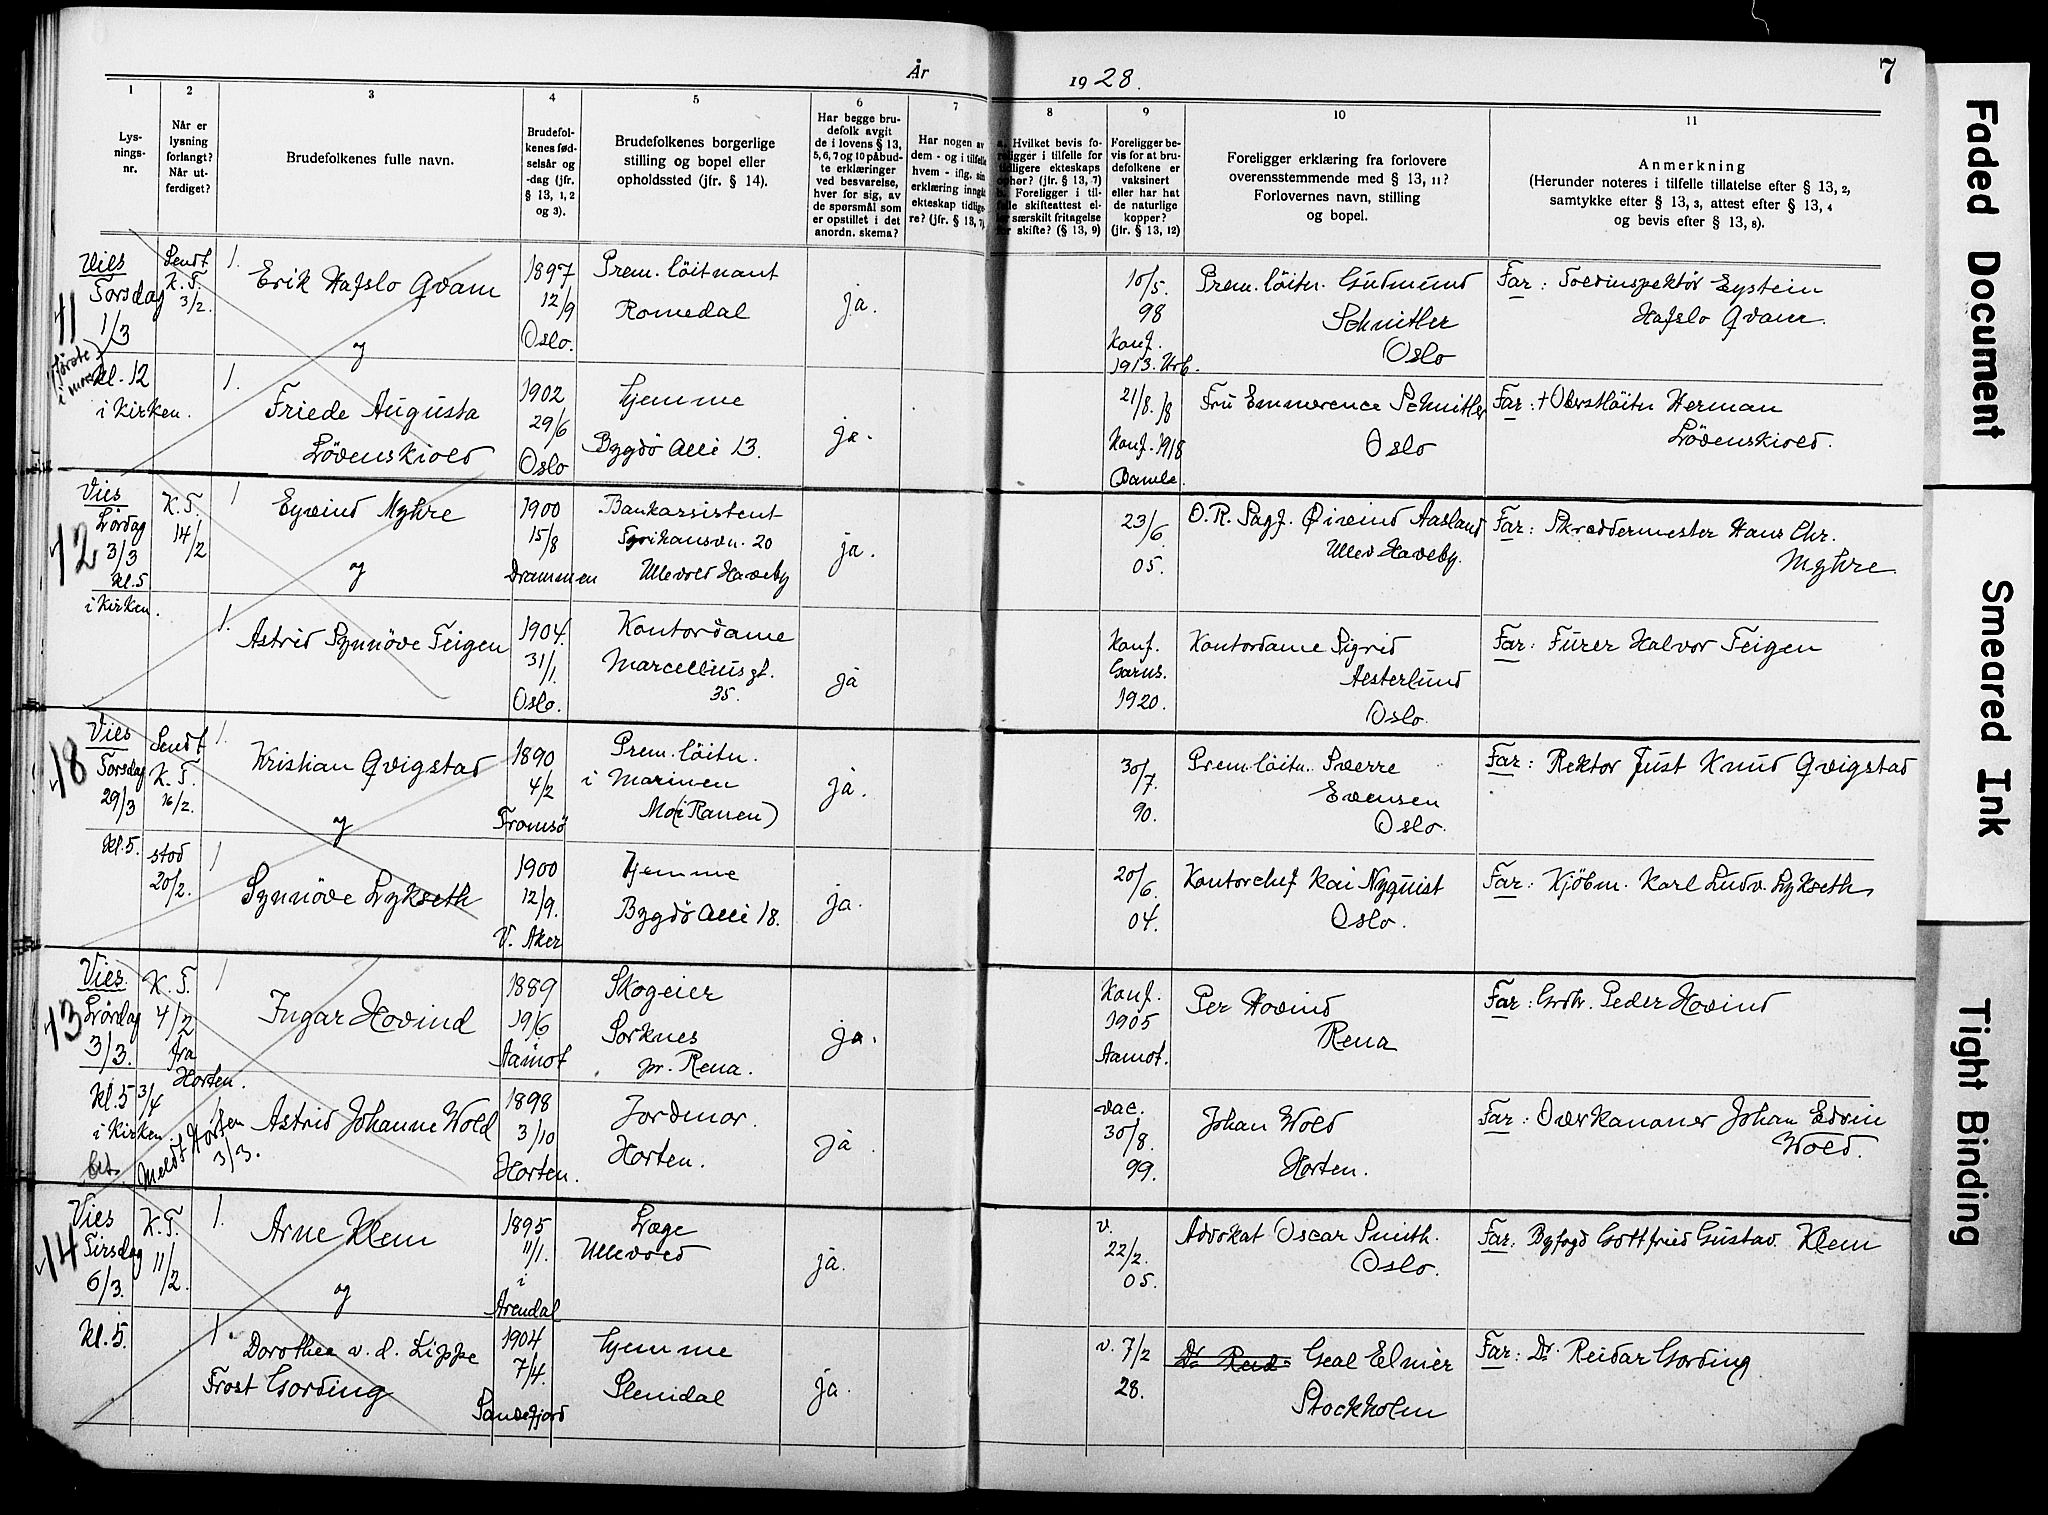 År 1928. 7
1 2 3 4 5 6 7 8 9 10 11
Lys-
nings-
nr.
Når er
lysning
forlangt?
Når ut-
ferdiget?
Brudefolkenes fulle navn.
Brudefol-
kenes fød-
selsår og
-dag (jfr.
§ 13, 1, 2
og 3).
Brudefolkenes borgerlige
stilling og bopel eller
opholdssted (jfr. § 14).
Har begge bru-
defolk avgit
de i lovens § 13,
5, 6, 7 og 10 påbud-
te erklæringer
ved besvarelse,
hver for sig, av
de spørsmål som
er opstillet i det
anordn. skema?
Har nogen av
dem - og i tilfelle
hvem - iflg. sin
erklæring inngått
ekteskap tidlige-
re? (jfr. § 13, 7)
a. Hvilket bevis fo-
religger i tilfelle for
tidligere ekteskaps
ophør? (jfr. § 13, 7)
b. Foreligger i til-
felle skifteattest el-
ler særskilt fritagelse
for skifte? (§ 13, 9)
Foreligger be-
vis for at bru-
defolkene er
vaksinert
eller har hat
de naturlige
kopper?
(jfr. § 13, 12)
Foreligger erklæring fra forlovere
overensstemmende med § 13, 11?
Forlovernes navn, stilling
og bopel.
Anmerkning
(Herunder noteres i tilfelle tillatelse efter § 13, 2,
samtykke efter § 13, 3, attest efter § 13, 4
og bevis efter § 13, 8).
11
Vies
Torsdag
1/3
(første
i mars)
kl. 12
i Kirken.
Sendt
K. T.
3/2.
1. Erik Hafslo Qvam
1897
12/9
Oslo.
Prem. löitnant
Romedal
ja.
10/5.
98
Konf.
1913. Urb.
Prem. löitn. Gudmund
Schnitler
Oslo
Far: Toldinspektör Eystein
Hafslo Qvam.
og
1. Friede Augusta
Lövenskiold
1902
29/6
Oslo
hjemme
Bygdö Allé 13.
ja.
21/8.
Konf. 1918
Bamle.
Fru Emmerence Schnitler
Oslo
Far: † Oberstlöitn Herman
Lövenskiold.
12
Vies
Lördag
3/3
kl. 5
i Kirken.
K. T.
14/2
1 Eyvind Myhre
1900
15/8
Drammen
Bankassistent
20
Ullevold Haveby
ja.
23/6.
05.
O. R. Sagf. Øivind Aasland
Ullev Haveby.
Far: Skreddermester Hans Chr.
Myhre.
og
1. Astrid Synnöve Teigen
1904.
31/1.
Oslo.
Kontordame
Marcellius gt.
35.
ja
Konf.
Garns.
1920.
Kontordame Sigrid
Aesterlund
Oslo.
Far: Furer Halvor Teigen
18
Vies
Torsdag
29/3
kl. 5.
Sendt
K. T.
16/2.
stod
20/2.
1. Kristian Qvigstad
1890
4/2
Tromsö
Prem. löitn.
i Marinen
Mo (i Ranen)
ja.
30/7.
90.
Prem. löitn. Sverre
Evensen
Oslo.
Far: Rektor Just Knud Qvigstad
og
1 Synnöve Lykseth
1900
12/9.
V. Aker
hjemme
Bygdö Allé 18.
ja.
20/6.
04.
Kontorchef Kai Nyquist
Oslo.
Far: Kjöbm. Karl Ludv. Lykseth
13
Vies
Lördag
3/3.
kl. 5
i Kirken.
K. T.
4/2
fra
Horten.
3/4
Meldt Horten
3/3.
1 Ingar Hovind
1889
19/6
Aamot
Skogeier
Sorknes
pr. Rena.
ja.
Konf.
1905
Aamot.
Per Hovind
Rena
Far: Grdbr. Peder Hovind
1 Astrid Johanne Wold
1898
3/10
Horten.
Jordmor.
Horten.
ja.
vac.
30/8.
99.
Johan Wold
Horten.
Far: Overkanoner Johan Edvin
Wold.
14
Vies
Tirsdag
6/3.
kl. 5.
K. T.
11/2.
1. Arne Klem
1895
11/1.
i
Arendal
Læge
Ullevold
ja.
v.
22/2.
05.
Advokat Oscar Smith.
Oslo.
Far: Byfogd Gottfried Gustav Klem
og
1. Dorothea v. d. Lippe
Frost Gording
1904
7/4.
Sandefjord
hjemme
Slemdal
ja.
v. 7/2
28.
Dr Reid- Geal Elmér
Stockholm
Far: Dr. Reidar Gording
Faded Document
Smeared Ink
Tight Binding